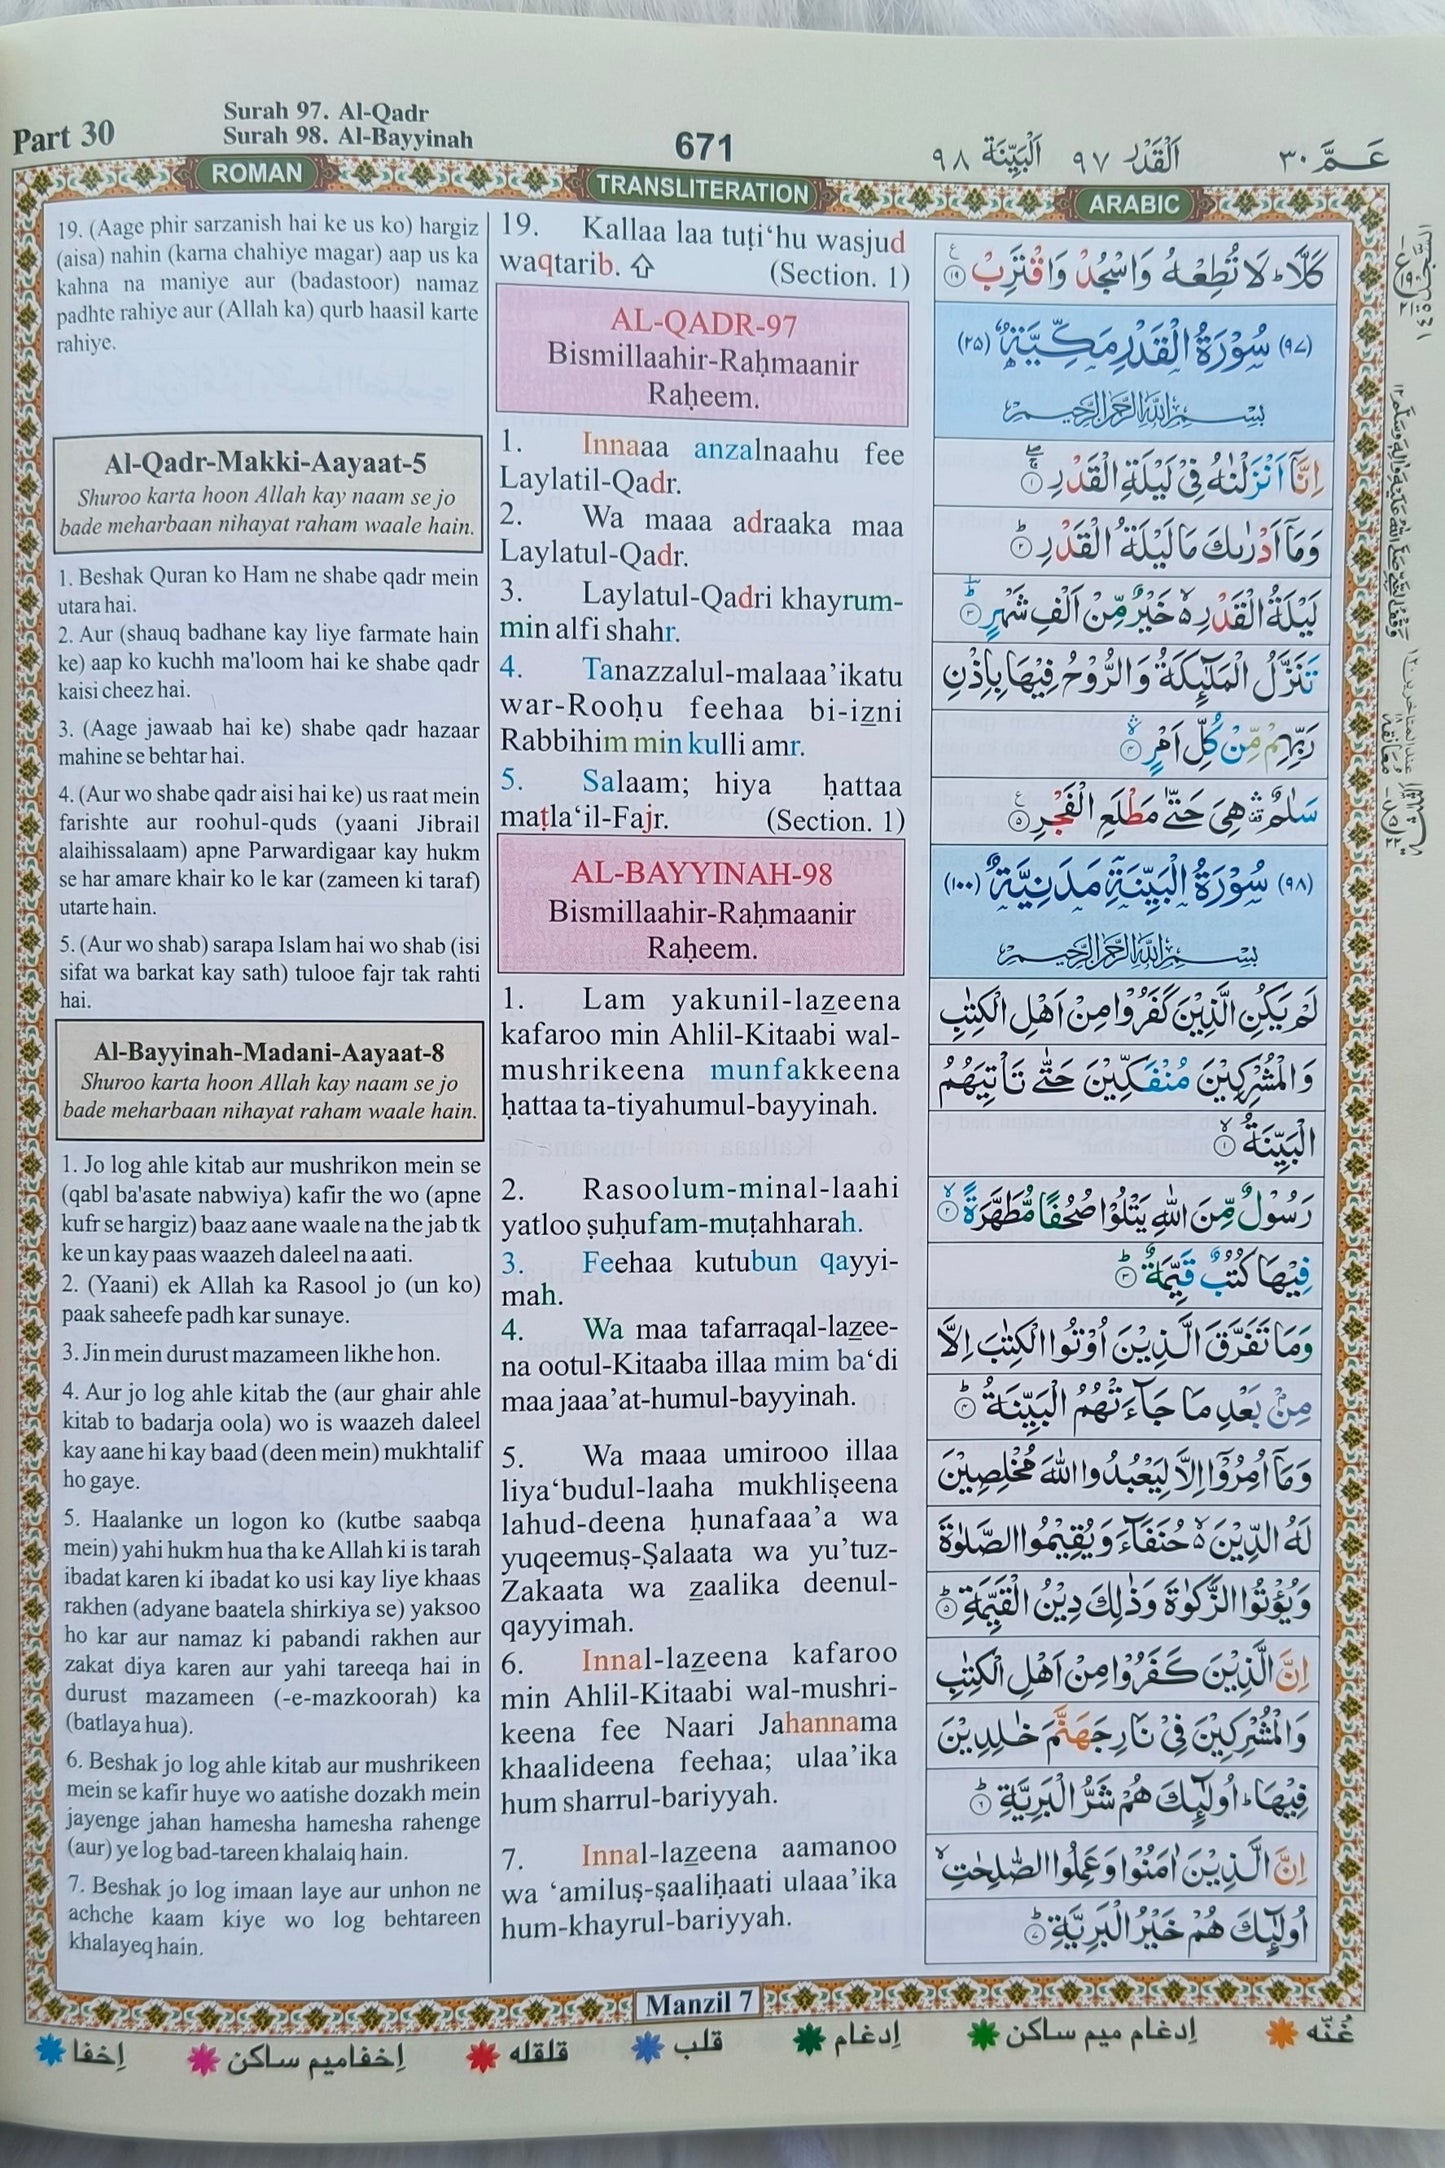 Part 30
Surah 97. Al-Qadr
Surah 98. Al-Bayyinah
671
اَلْبَيِّنَة ٩٨
اَلْقَدْر ٩٧
عَـمَّ ٣٠
ROMAN
19. (Aage phir sarzanish hai ke us ko) hargiz
(aisa) nahin (karna chahiye magar) aap us ka
kahna na maniye aur (badastoor) namaz
padhte rahiye aur (Allah ka) qurb haasil karte
rahiye.
Al-Qadr-Makki-Aayaat-5
Shuroo karta hoon Allah kay naam se jo
bade meharbaan nihayat raham waale hain.
1. Beshak Quran ko Ham ne shabe qadr mein
utara hai.
2. Aur (shauq badhane kay liye farmate hain
ke) aap ko kuchh ma'loom hai ke shabe qadr
kaisi cheez hai.
3. (Aage jawaab hai ke) shabe qadr hazaar
mahine se behtar hai.
4. (Aur wo shabe qadr aisi hai ke) us raat mein
farishte aur roohul-quds (yaani Jibrail
alaihissalaam) apne Parwardigaar kay hukm
se har amare khair ko le kar (zameen ki taraf)
utarte hain.
5. (Aur wo shab) sarapa Islam hai wo shab (isi
sifat wa barkat kay sath) tulooe fajr tak rahti
hai.
Al-Bayyinah-Madani-Aayaat-8
Shuroo karta hoon Allah kay naam se jo
bade meharbaan nihayat raham waale hain.
1. Jo log ahle kitab aur mushrikon mein se
(qabl ba'asate nabwiya) kafir the wo (apne
kufr se hargiz) baaz aane waale na the jab tk
ke un kay paas waazeh daleel na aati.
2. (Yaani) ek Allah ka Rasool jo (un ko)
paak saheefe padh kar sunaye.
3. Jin mein durust mazameen likhe hon.
4. Aur jo log ahle kitab the (aur ghair ahle
kitab to badarja oola) wo is waazeh daleel
kay aane hi kay baad (deen mein) mukhtalif
ho gaye.
5. Haalanke un logon ko (kutbe saabqa
mein) yahi hukm hua tha ke Allah ki is tarah
ibadat karen ki ibadat ko usi kay liye khaas
rakhen (adyane baatela shirkiya se) yaksoo
ho kar aur namaz ki pabandi rakhen aur
zakat diya karen aur yahi tareeqa hai in
durust mazameen (-e-mazkoorah) ka
(batlaya hua).
6. Beshak jo log ahle kitab aur mushrikeen
mein se kafir huye wo aatishe dozakh mein
jayenge jahan hamesha hamesha rahenge
(aur) ye log bad-tareen khalaiq hain.
7. Beshak jo log imaan laye aur unhon ne
achche kaam kiye wo log behtareen
khalayeq hain.
TRANSLITERATION
19. Kallaa laa tuṭi‘hu wasjud
waqtarib. ⇧ (Section. 1)
AL-QADR-97
Bismillaahir-Raḥmaanir
Raḥeem.
1. Innaaa anzalnaahu fee
Laylatil-Qadr.
2. Wa maaa adraaka maa
Laylatul-Qadr.
3. Laylatul-Qadri khayrum-
min alfi shahr.
4. Tanazzalul-malaaa’ikatu
war-Rooḥu feehaa bi-iz̲ni
Rabbihim min kulli amr.
5. Salaam; hiya ḥattaa
maṭla‘il-Fajr. (Section. 1)
AL-BAYYINAH-98
Bismillaahir-Raḥmaanir
Raḥeem.
1. Lam yakunil-laz̲eena
kafaroo min Ahlil-Kitaabi wal-
mushrikeena munfakkeena
ḥattaa ta-tiyahumul-bayyinah.
2. Rasoolum-minal-laahi
yatloo ṣuḥufam-muṭahharah.
3. Feehaa kutubun qayyi-
mah.
4. Wa maa tafarraqal-laz̲ee-
na ootul-Kitaaba illaa mim ba‘di
maa jaaa’at-humul-bayyinah.
5. Wa maaa umirooo illaa
liya‘budul-laaha mukhliṣeena
lahud-deena ḥunafaaa’a wa
yuqeemuṣ-Ṣalaata wa yu’tuz-
Zakaata wa z̲aalika deenul-
qayyimah.
6. Innal-laz̲eena kafaroo
min Ahlil-Kitaabi wal-mushri-
keena fee Naari Jahannama
khaalideena feehaa; ulaa’ika
hum sharrul-bariyyah.
7. Innal-laz̲eena aamanoo
wa ‘amiluṣ-ṣaaliḥaati ulaaa’ika
hum-khayrul-bariyyah.
ARABIC
كَلَّا ؕ لَا تُطِعْهُ وَاسْجُدْ وَاقْتَرِبْ ۝١٩
(٩٧) سُوْرَةُ الْقَدْرِ مَكِّيَّةٌ (٢٥)
بِسْمِ اللّٰهِ الرَّحْمٰنِ الرَّحِيْمِ
اِنَّاۤ اَنْزَلْنٰهُ فِيْ لَيْلَةِ الْقَدْرِ ۝١
وَمَاۤ اَدْرٰىكَ مَا لَيْلَةُ الْقَدْرِ ۝٢
لَيْلَةُ الْقَدْرِ ۙ خَيْرٌ مِّنْ اَلْفِ شَهْرٍ ۝٣
تَنَزَّلُ الْمَلٰٓئِكَةُ وَالرُّوْحُ فِيْهَا بِاِذْنِ
رَبِّهِمْ مِّنْ كُلِّ اَمْرٍ ۝٤
سَلٰمٌ ۛ هِيَ حَتّٰى مَطْلَعِ الْفَجْرِ ۝٥
(٩٨) سُوْرَةُ الْبَيِّنَةِ مَدَنِيَّةٌ (١٠٠)
بِسْمِ اللّٰهِ الرَّحْمٰنِ الرَّحِيْمِ
لَمْ يَكُنِ الَّذِيْنَ كَفَرُوْا مِنْ اَهْلِ الْكِتٰبِ
وَالْمُشْرِكِيْنَ مُنْفَكِّيْنَ حَتّٰى تَاْتِيَهُمُ
الْبَيِّنَةُ ۝١
رَسُوْلٌ مِّنَ اللّٰهِ يَتْلُوْا صُحُفًا مُّطَهَّرَةً ۝٢
فِيْهَا كُتُبٌ قَيِّمَةٌ ۝٣
وَمَا تَفَرَّقَ الَّذِيْنَ اُوْتُوا الْكِتٰبَ اِلَّا
مِنْۢ بَعْدِ مَا جَآءَتْهُمُ الْبَيِّنَةُ ۝٤
وَمَاۤ اُمِرُوْۤا اِلَّا لِيَعْبُدُوا اللّٰهَ مُخْلِصِيْنَ
لَهُ الدِّيْنَ ۙ حُنَفَآءَ وَيُقِيْمُوا الصَّلٰوةَ
وَيُؤْتُوا الزَّكٰوةَ وَذٰلِكَ دِيْنُ الْقَيِّمَةِ ۝٥
اِنَّ الَّذِيْنَ كَفَرُوْا مِنْ اَهْلِ الْكِتٰبِ
وَالْمُشْرِكِيْنَ فِيْ نَارِ جَهَنَّمَ خٰلِدِيْنَ
فِيْهَا ؕ اُولٰٓئِكَ هُمْ شَرُّ الْبَرِيَّةِ ۝٦
اِنَّ الَّذِيْنَ اٰمَنُوْا وَعَمِلُوا الصّٰلِحٰتِ ۙ
اُولٰٓئِكَ هُمْ خَيْرُ الْبَرِيَّةِ ۝٧
Manzil 7
غُنّه
اِدغام ميم ساكن
اِدغام
قلب
قلقله
اِخفاميم ساكن
اِخفا